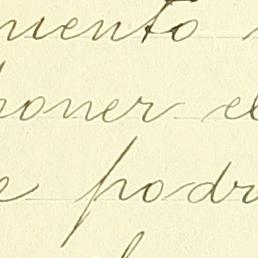 mento
poner el
e podr